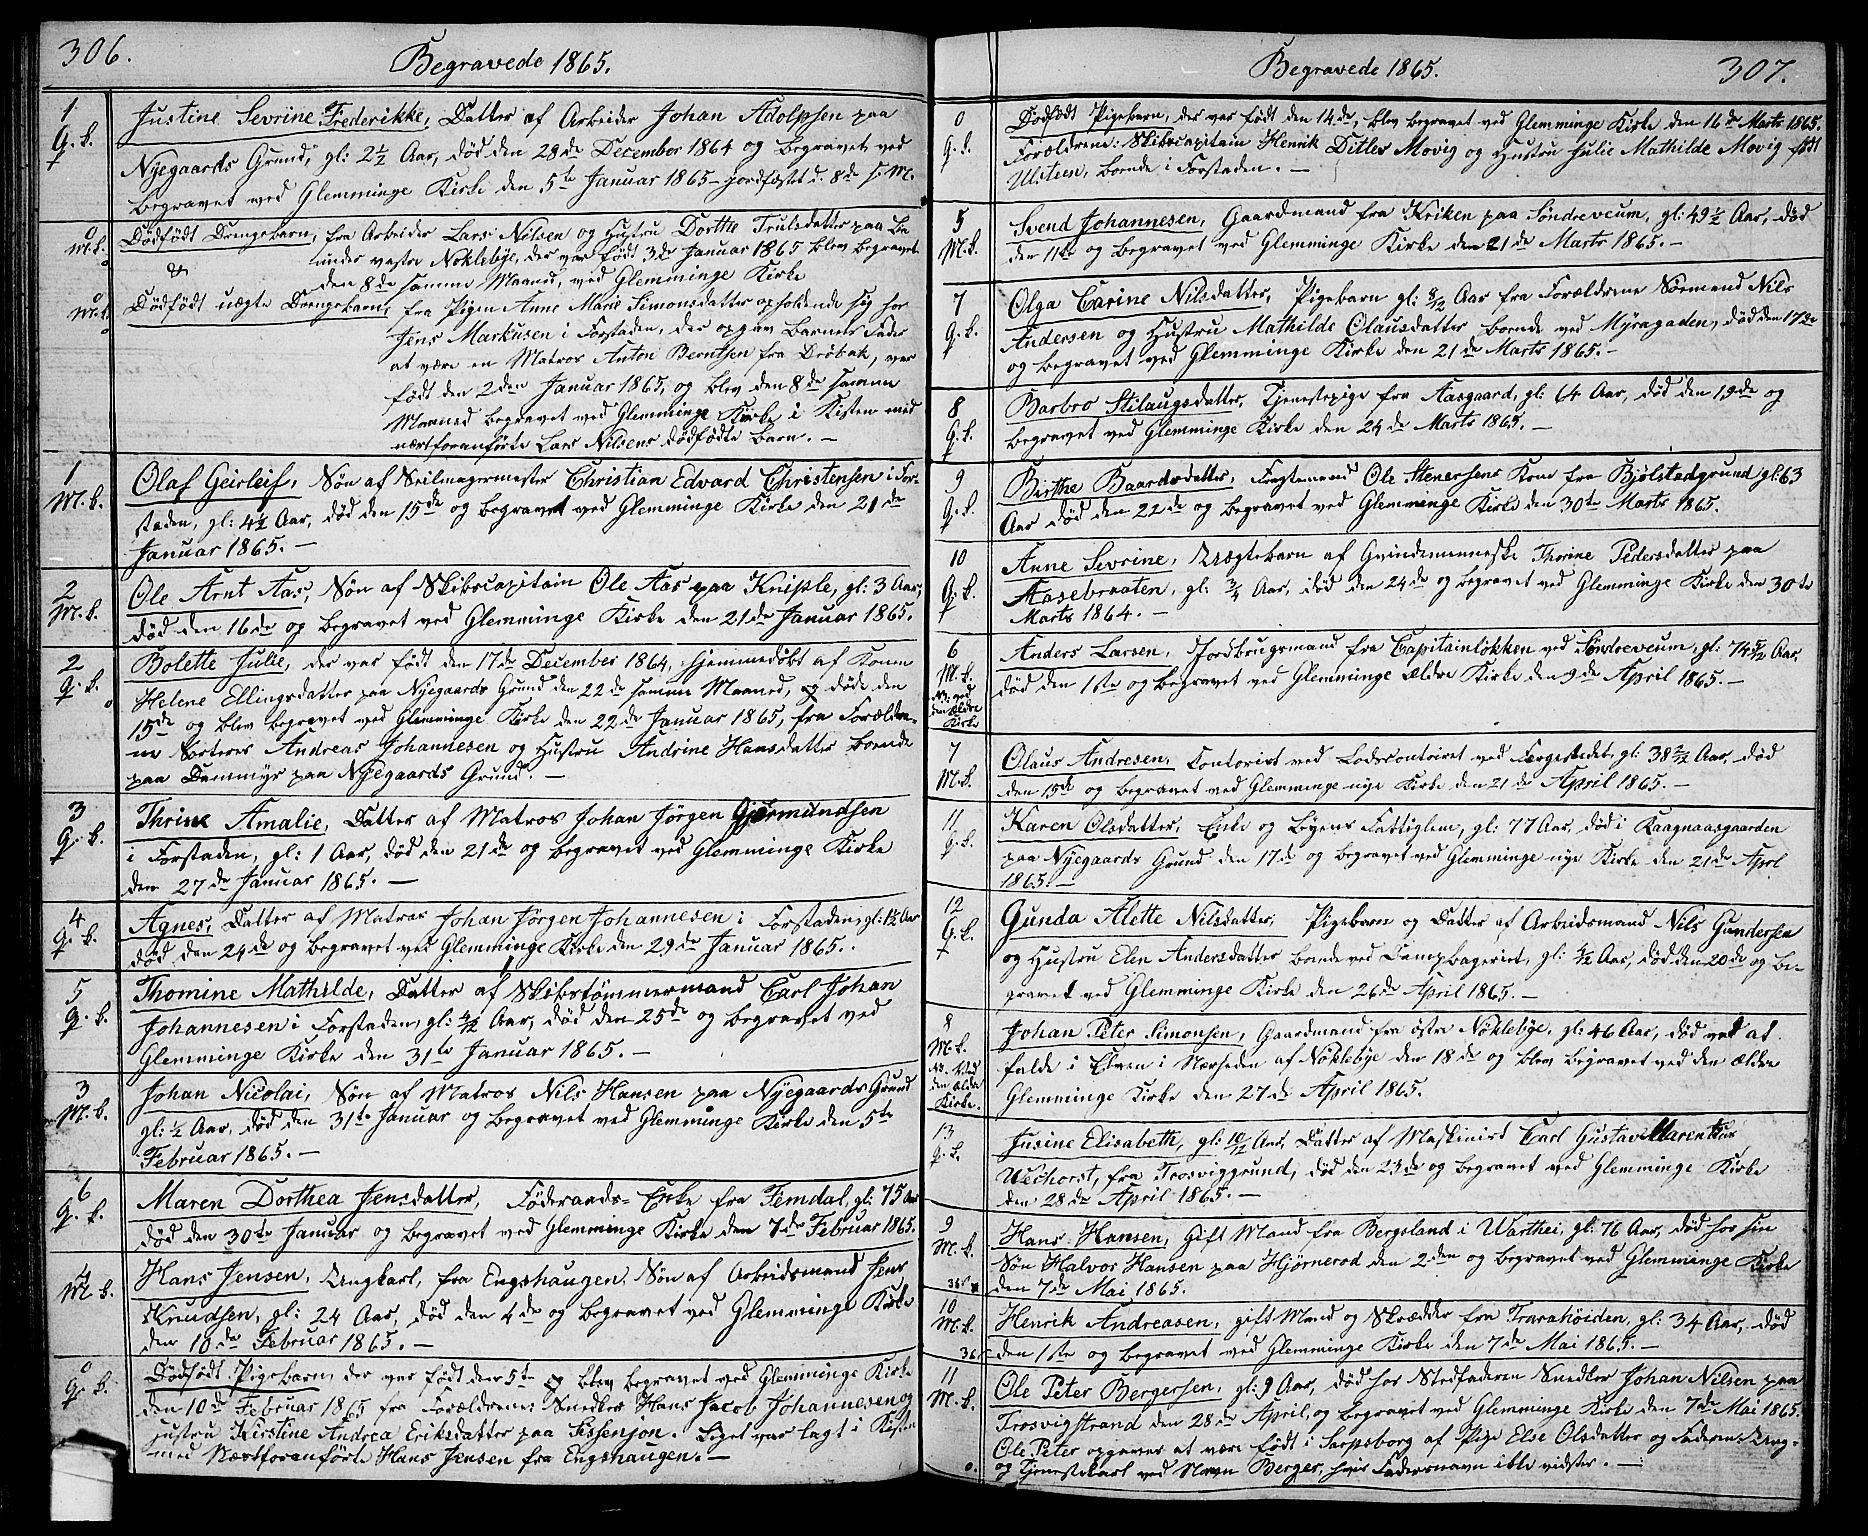 306.
Begravede 1865.
1
Q. k.
Justine Sevrine Frederikke, Datter af Arbeider Johan Adolphsen paa
Nyegaards Grund, gl: 2½ Aar, død den 28de December 1864 og begravet ved
begravet ved Glemminge Kirke den 5te Januar 1865 - jordfæstet d. 8de s: M.
0
M. k.
Dødfødt Drengebarn, fra Arbeider Lars Nilsen og Hustru Dorthe Trulsdatter paa
under vestre Noklebye, der var født 3de Januar 1865 blev begravet
den 8de samme Maaned, ved Glemminge Kirke
&
0
M. k.
Dødfødt uægte Drengebarn, fra Pigen Anne Marie Simonsdatter opholdende sig hos
Jens Markusen i Forstaden, der opgav Barnets Fader
at være en Matros Anton Berntsen fra Drøbak, var
født den 2den Januar 1865, og blev den 8de samme
Maaned begravet ved Glemminge Kirke i Kisten med
næstforanførte Lars Nilsens dødfødte Barn. —
1
M. k.
Olaf Geirleif, Søn af Seilmagermester Christian Edvard Christensen i For-
staden, gl: 4½ Aar, død den 15de og begravet ved Glemminge Kirke den 21de
Januar 1865. —
2
M. k.
Ole Arnt Aas, Søn af Skibscapitain Ole Aas paa Kniple, gl: 3 Aar,
død den 16de og begravet ved Glemminge Kirke den 21de Januar 1865.
2
Q. k.
Bolette Julie, der var født den 17de December 1864, hjemmedøbt af Konen
Helene Ellingsdatter paa Nyegaards Grund den 22de samme Maaned, og døde den
15de og blev begravet ved Glemminge Kirke den 22de Januar 1865, fra Forældre-
ne Sorterer Andreas Johannesen og Hustru Andrine Hansdatter boende
paa Dammyr paa Nyegaards Grund. —
3
Q. k.
Thrine Amalie, Datter af Matros Johan Jørgen Gjermundsen
i Forstaden, gl: 1 Aar, død den 21de og begravet ved Glemminge Kirke
den 27de Januar 1865. —
4
Q. k.
Agnes, Datter af Matros Johan Jørgen Johannesen i Forstaden, gl: 1½ Aar
død den 24de og begravet ved Glemminge Kirke den 29de Januar 1865.
5
Q. k.
Thomine Mathilde, Datter af Skibstømmermand Carl Johan
Johannesen i Forstaden, gl: 4/12 Aar, død den 25de og begravet ved
Glemminge Kirke den 31te Januar 1865. —
3
M. k.
Johan Nicolai, Søn af Matros Nils Hansen paa Nyegaards Grund
gl: ½ Aar, død den 31te Januar og begravet ved Glemminge Kirke den 5te
Februar 1865. —
6
Q. k.
Maren Dorthea Jensdatter, Føderaads-Enke fra Femdal, gl: 75 Aar
død den 30te Januar og begravet ved Glemminge Kirke den 7de Februar 1865.
4
M. k.
Hans Jensen, Ungkarl, fra Engshaugen, Søn af Arbeidsmand Jens
Knudsen, gl: 24 Aar, død den 4de og begravet ved Glemminge Kirke
den 10de Februar 1865. —
0
Q. k.
Dødfødt Pigebarn, der var født den 5te og blev begravet ved Glemminge Kirke
den 10de Februar 1865 fra Forældrene: Snedker Hans Jacob Johannesen og
Hustru Kirstine Andrea Eriksdatter paa. Liget var lagt i Kisten
med Næstforanførte Hans Jensen fra Engshaugen. —
Begravede 1865.
307.
0
Q. k.
Dødfødt Pigebarn, der var født den 14de, blev begravet ved Glemminge Kirke den 16de Marts 1865.
Forældrene: Skibscapitain Henrik Ditlev Movig og Hustru Julie Mathilde Movig født
Ulsteen, boende i Forstaden. —
5
M. k.
Svend Johannesen, Gaardmand fra Kriken paa Søndreveum, gl: 49½ Aar, død
den 11te og begravet ved Glemminge Kirke den 21de Marts 1865. —
7
Q. k.
Olga Carine Nilsdatter, Pigebarn gl: 8/12 Aar fra Forældrene Sømand Nils
Andersen og Hustru Mathilde Olausdatter boende ved Myragaden, død den 17de
og begravet ved Glemminge Kirke den 21de Marts 1865. —
8
Q. k.
Barbro Stilaugsdatter, Tjenestepige fra Aasgaard, gl: 64 Aar, død den 19de og
begravet ved Glemminge Kirke den 24de Marts 1865. —
9
Q. k.
Birthe Baardsdatter, Ole Stenersens Kone fra Bjølstadgrund gl: 63
Aar død den 22de og begravet ved Glemminge Kirke den 30te Marts 1865.
10
Q. k.
Anne Sevrine, Uægtebarn af Qvindemenneske Thorine Pedersdatter paa
Aasebraaten, gl: ¾ Aar, død den 24de og begravet ved Glemminge Kirke den 30te
Marts 1864. —
6
M. k.
NB. ved
den ældre
Kirke
Anders Larsen, Jordbrugsmand fra Capitainløkken ved Søndreveum, gl: 74 5/12 Aar,
død den 1ste og begravet ved Glemminge ældre Kirke den 9de April 1865. —
7
M. k.
Olaus Andresen, Contorist ved Lodscontoiret ved Færgestedet, gl: 38 2/12 Aar, død
den 15de og begravet ved Glemminge nye Kirke den 21de April 1865. —
11
Q. k.
Karen Olsdatter, Enke og Byens Fattiglem, gl: 77 Aar, død i Raagnaasgaarden
paa Nyegaards Grund den 17de og begravet ved Glemminge nye Kirke den 21de Aprl
1865. —
12
Q. k.
Gunda Alette Nilsdatter, Pigebarn og Datter af Arbeidsmand Nils Gundersen
og Hustru Elen Andersdatter boende ved Dampbageriet, gl: 4/12 Aar, død den 20de og be-
gravet ved Glemminge Kirke den 26de April 1865. —
8
M. k.
NB. Ved
den ældre
Kirke.
Johan Peter Simonsen, Gaardmand fra østre Noklebye, gl: 46 Aar, død ved at
falde i Elven i Nærheden af Noklebye den 18de og blev begravet ved den ældre
Glemminge Kirke den 27de April 1865.
13
Q. k.
Jusine Elisabeth, gl: 10/12 Aar, Datter af Maskinist Carl Gustav
Wechorst, fra Trosviggrund, død den 23de og begravet ved Glemminge Kirke
den 28de April 1865. —
9
M. k.
Hans Hansen, Gift Mand fra Bergsland i Warthei, gl: 76 Aar, død hos sin
Søn Halvor Hansen paa Hjørnerod den 2den og begravet ved Glemminge Kirke
den 7de Mai 1865.
10
M. k.
Henrik Andreasen, gift Mand og Skrædder fra Trarahøiden, gl: 34 Aar, død
den 1ste og begravet ved Glemminge Kirke den 7de Mai 1865. —
11
M. k.
Ole Peter Bergersen, gl: 9 Aar, død hos Stedfaderen Snedker Johan Nilsen paa
Trosvigstrand den 28de April, og begravet ved Glemminge Kirke den 7de Mai 1865.
Ole Peter opgaves at være født i Sarpsborg af Pige Else Olsdatter og Faderen: Ung-
og Tjenestekarl ved Navn Berger, hvis Fadersnavn ikke vidstes. —